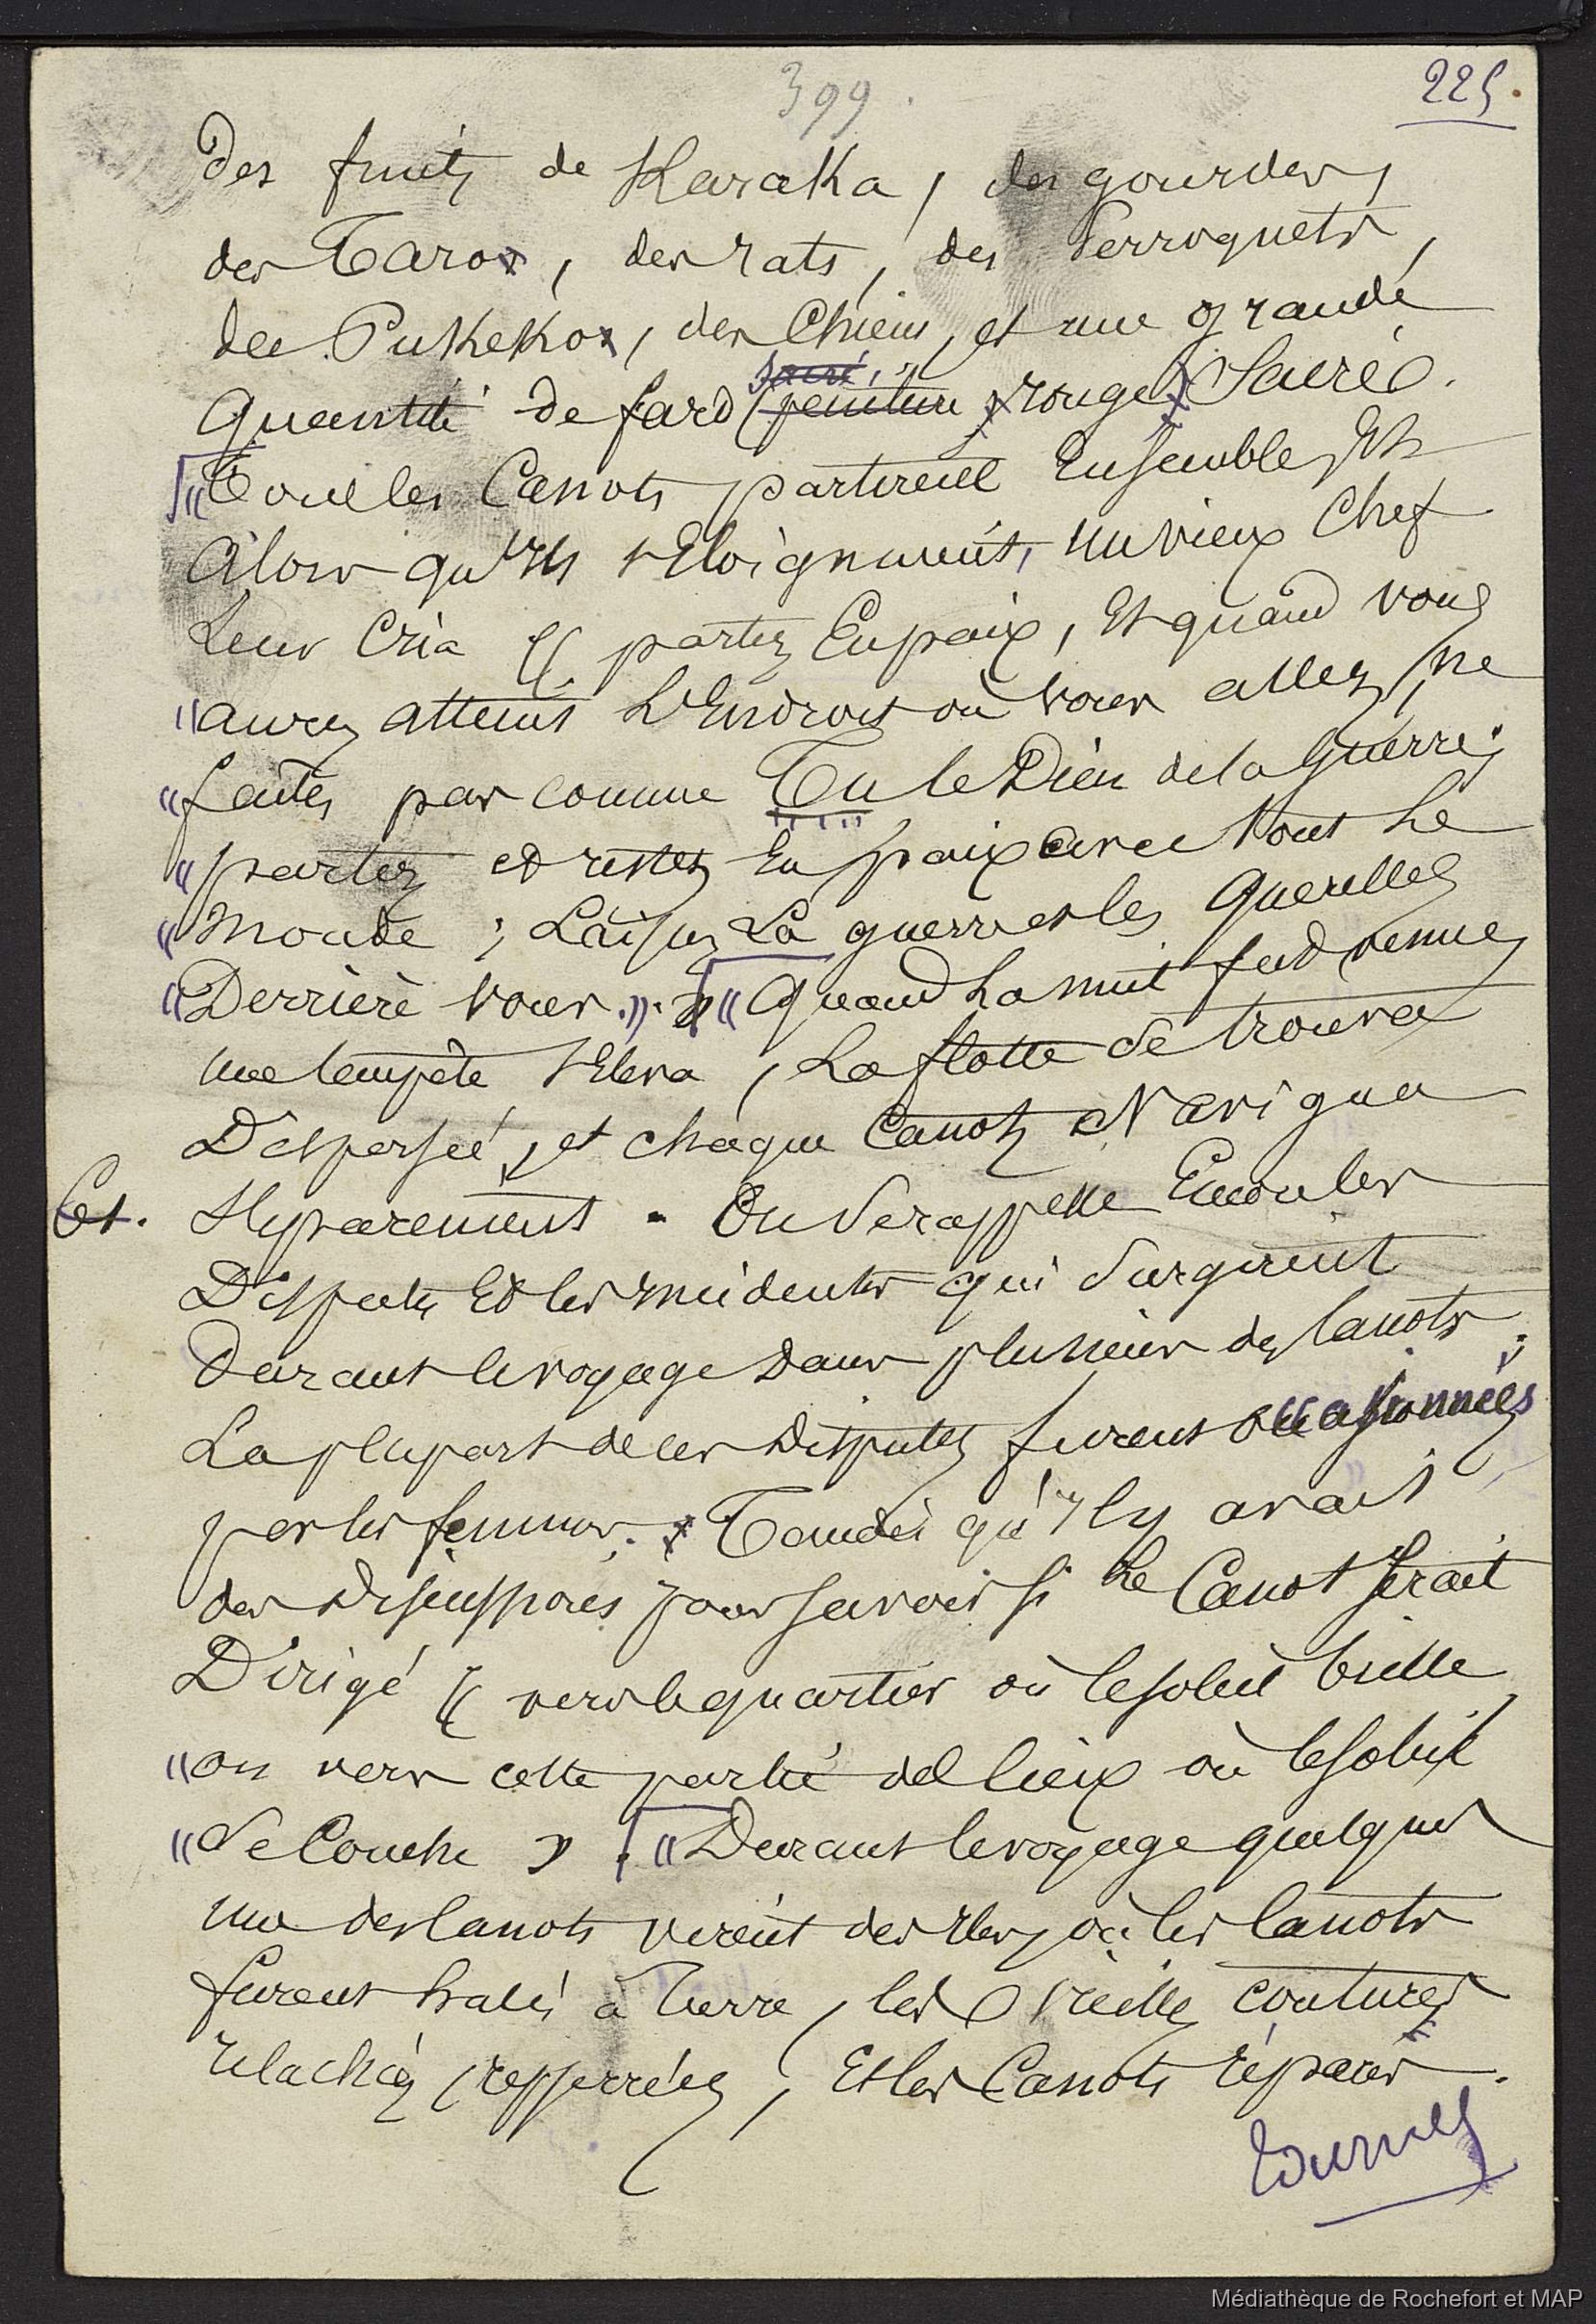 399.
225.
Des fruits de Karaka, des gourdes,
des Taros, des rats, des Perroquets,
des Pukekos, des Chiens, et une grande
Quantité de fard (peinture sacré, " rouge Sacrée.
"Tous les Canots partirent Ensemble, Et
Alors qu'Ils s'Eloignaient, un vieux Chef
Leur Cria " partez En paix, Et quand vous
"aurez atteint L'Endroit où vous allez, ne
"faites pas comme Tu le Dieu de la Guerre;
"partez et restez En paix avec tout Le
"Monde ; Laissez La guerre et les Querelles
"Derrière vous.". "Quand La nuit fut venue,
une tempête s'Eleva, La flotte Se trouva
Dispersée, et chaque Canot Navigua
Et. Séparement. On Se rappelle Encore les
Disputes Et les Incidents qui Surgirent
Durant le voyage Dans plusieurs des Canots;
La plupart de ces Disputes furent occasionnées
par les femmes. Tandis qu'Il y avait
des Discussions pour Savoir si Le Canot serait
Dirigé " vers le quartier où le soleil brille
"ou vers cette partie del Cieux où le Soleil
"Se Couche ". "Durant le voyage quelques
uns des Canots virent des Iles, où les Canots
furent halés à Terre, les Vieilles coutures
relachées, resserrées, Et les Canots réparés.
Médiathèque de Rochefort et MAP